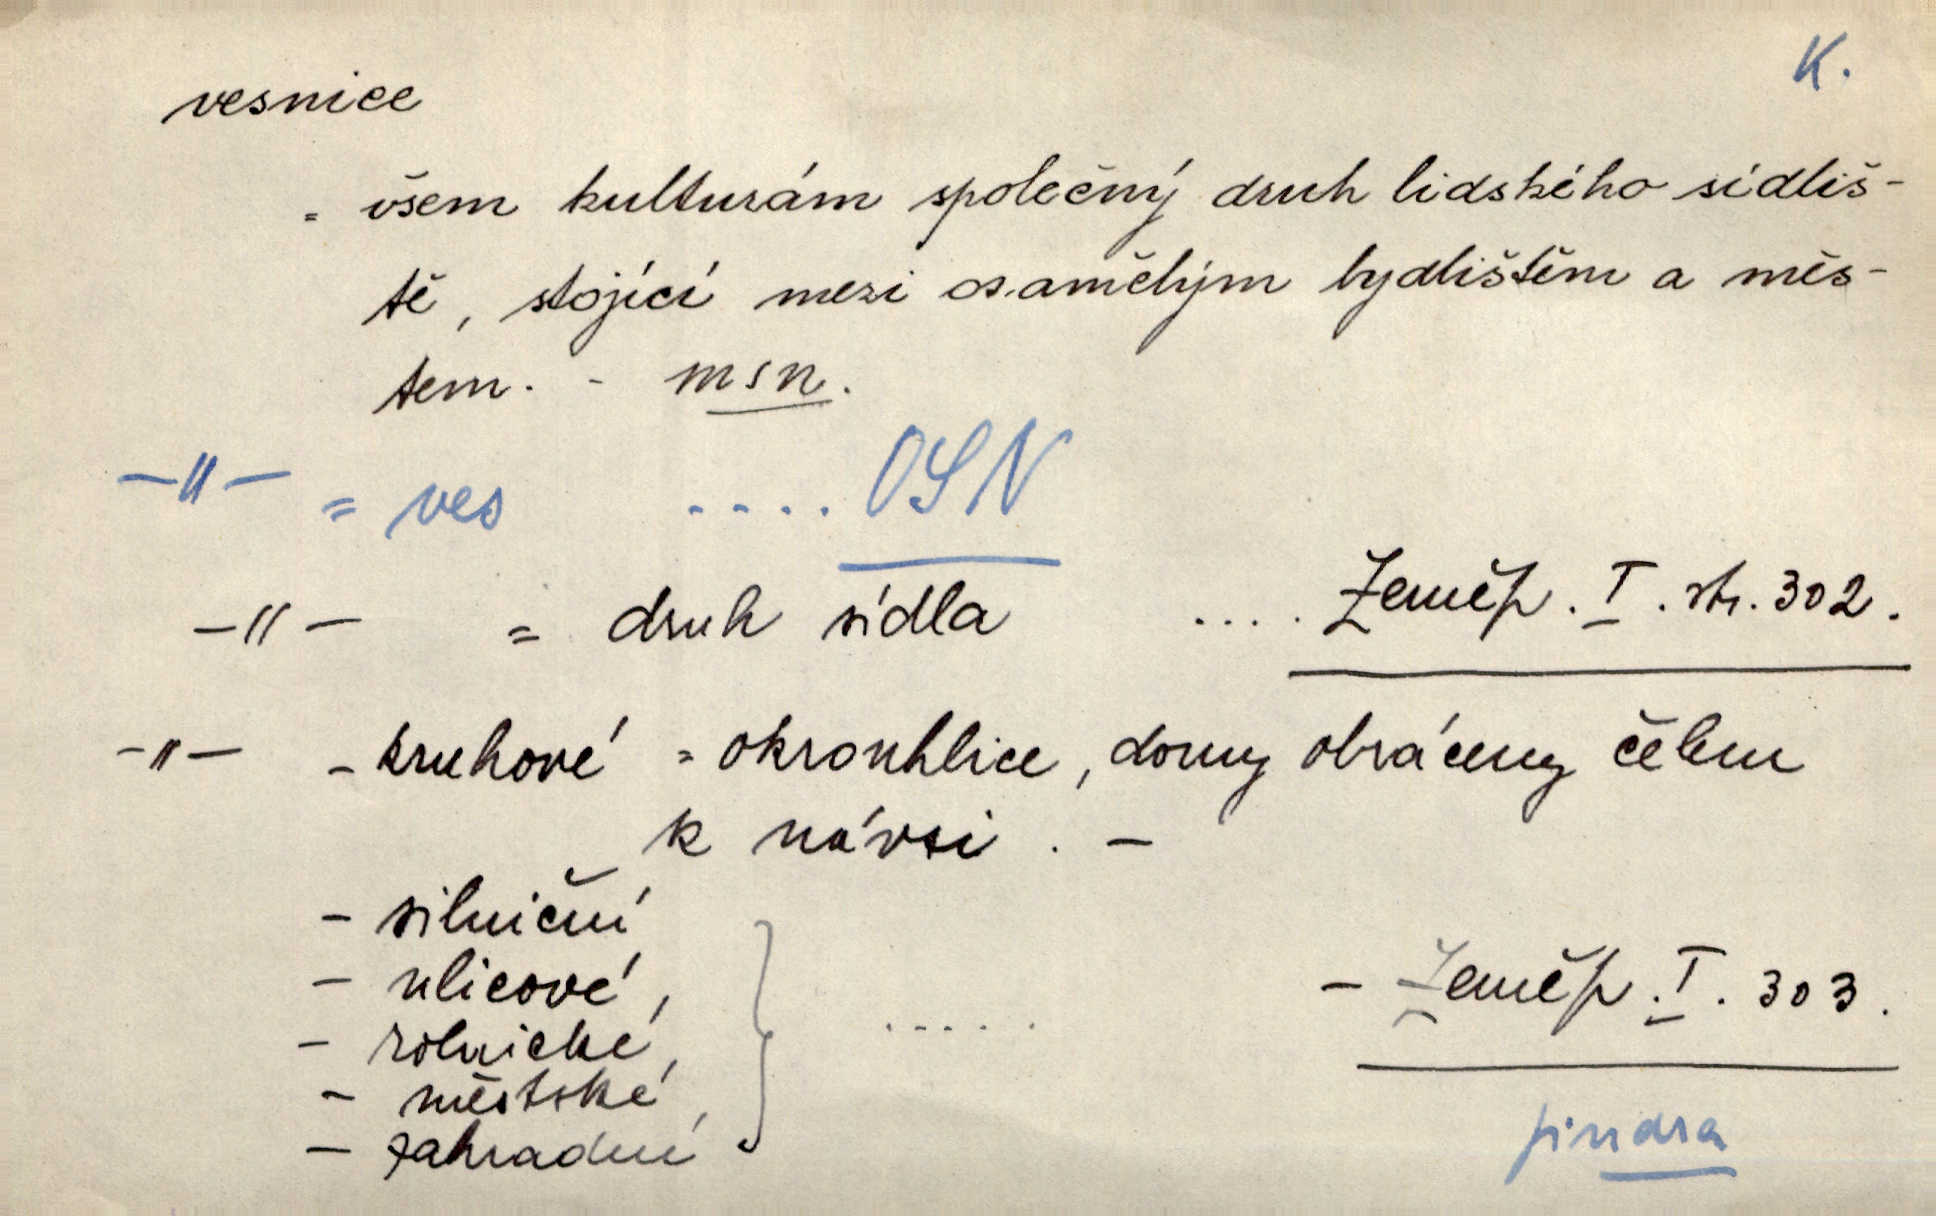 K.
vesnice
= všem kulturám společný druh lidského sídliš-
tě, stojící mezi osamělým bydlištěm a měs-
tem. - msn.
-"- = ves ..... OSN
-"- = druh sídla .... Zeměp. I. str. 302.
-"- - kruhové = okrouhlice, domy obráceny čelem
k návsi. -
- silniční
- ulicové,
- rolnické,
- městské,
- zahradní
..... - Zeměp. I. 303.